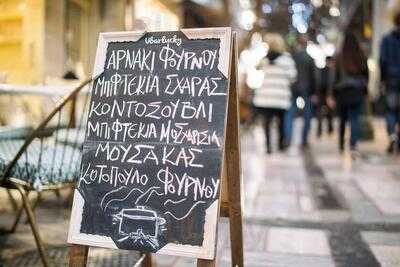 UBarlucky
ΑΡΝΑΚΙ ΦΟΥΡΝΟΥ
ΜΠΙΦΤΕΚΙΑ ΣΧΑΡΑΣ
ΚΟΝΤΟΣΟΥΒΛΙ
ΜΠΙΦΤΕΚΙΑ ΜΟΣΧΑΡΙΣΙΑ
ΜΟΥΣΑΚΑΣ
ΚΟΤΟΠΟΥΛΟ ΦΟΥΡΝΟΥ